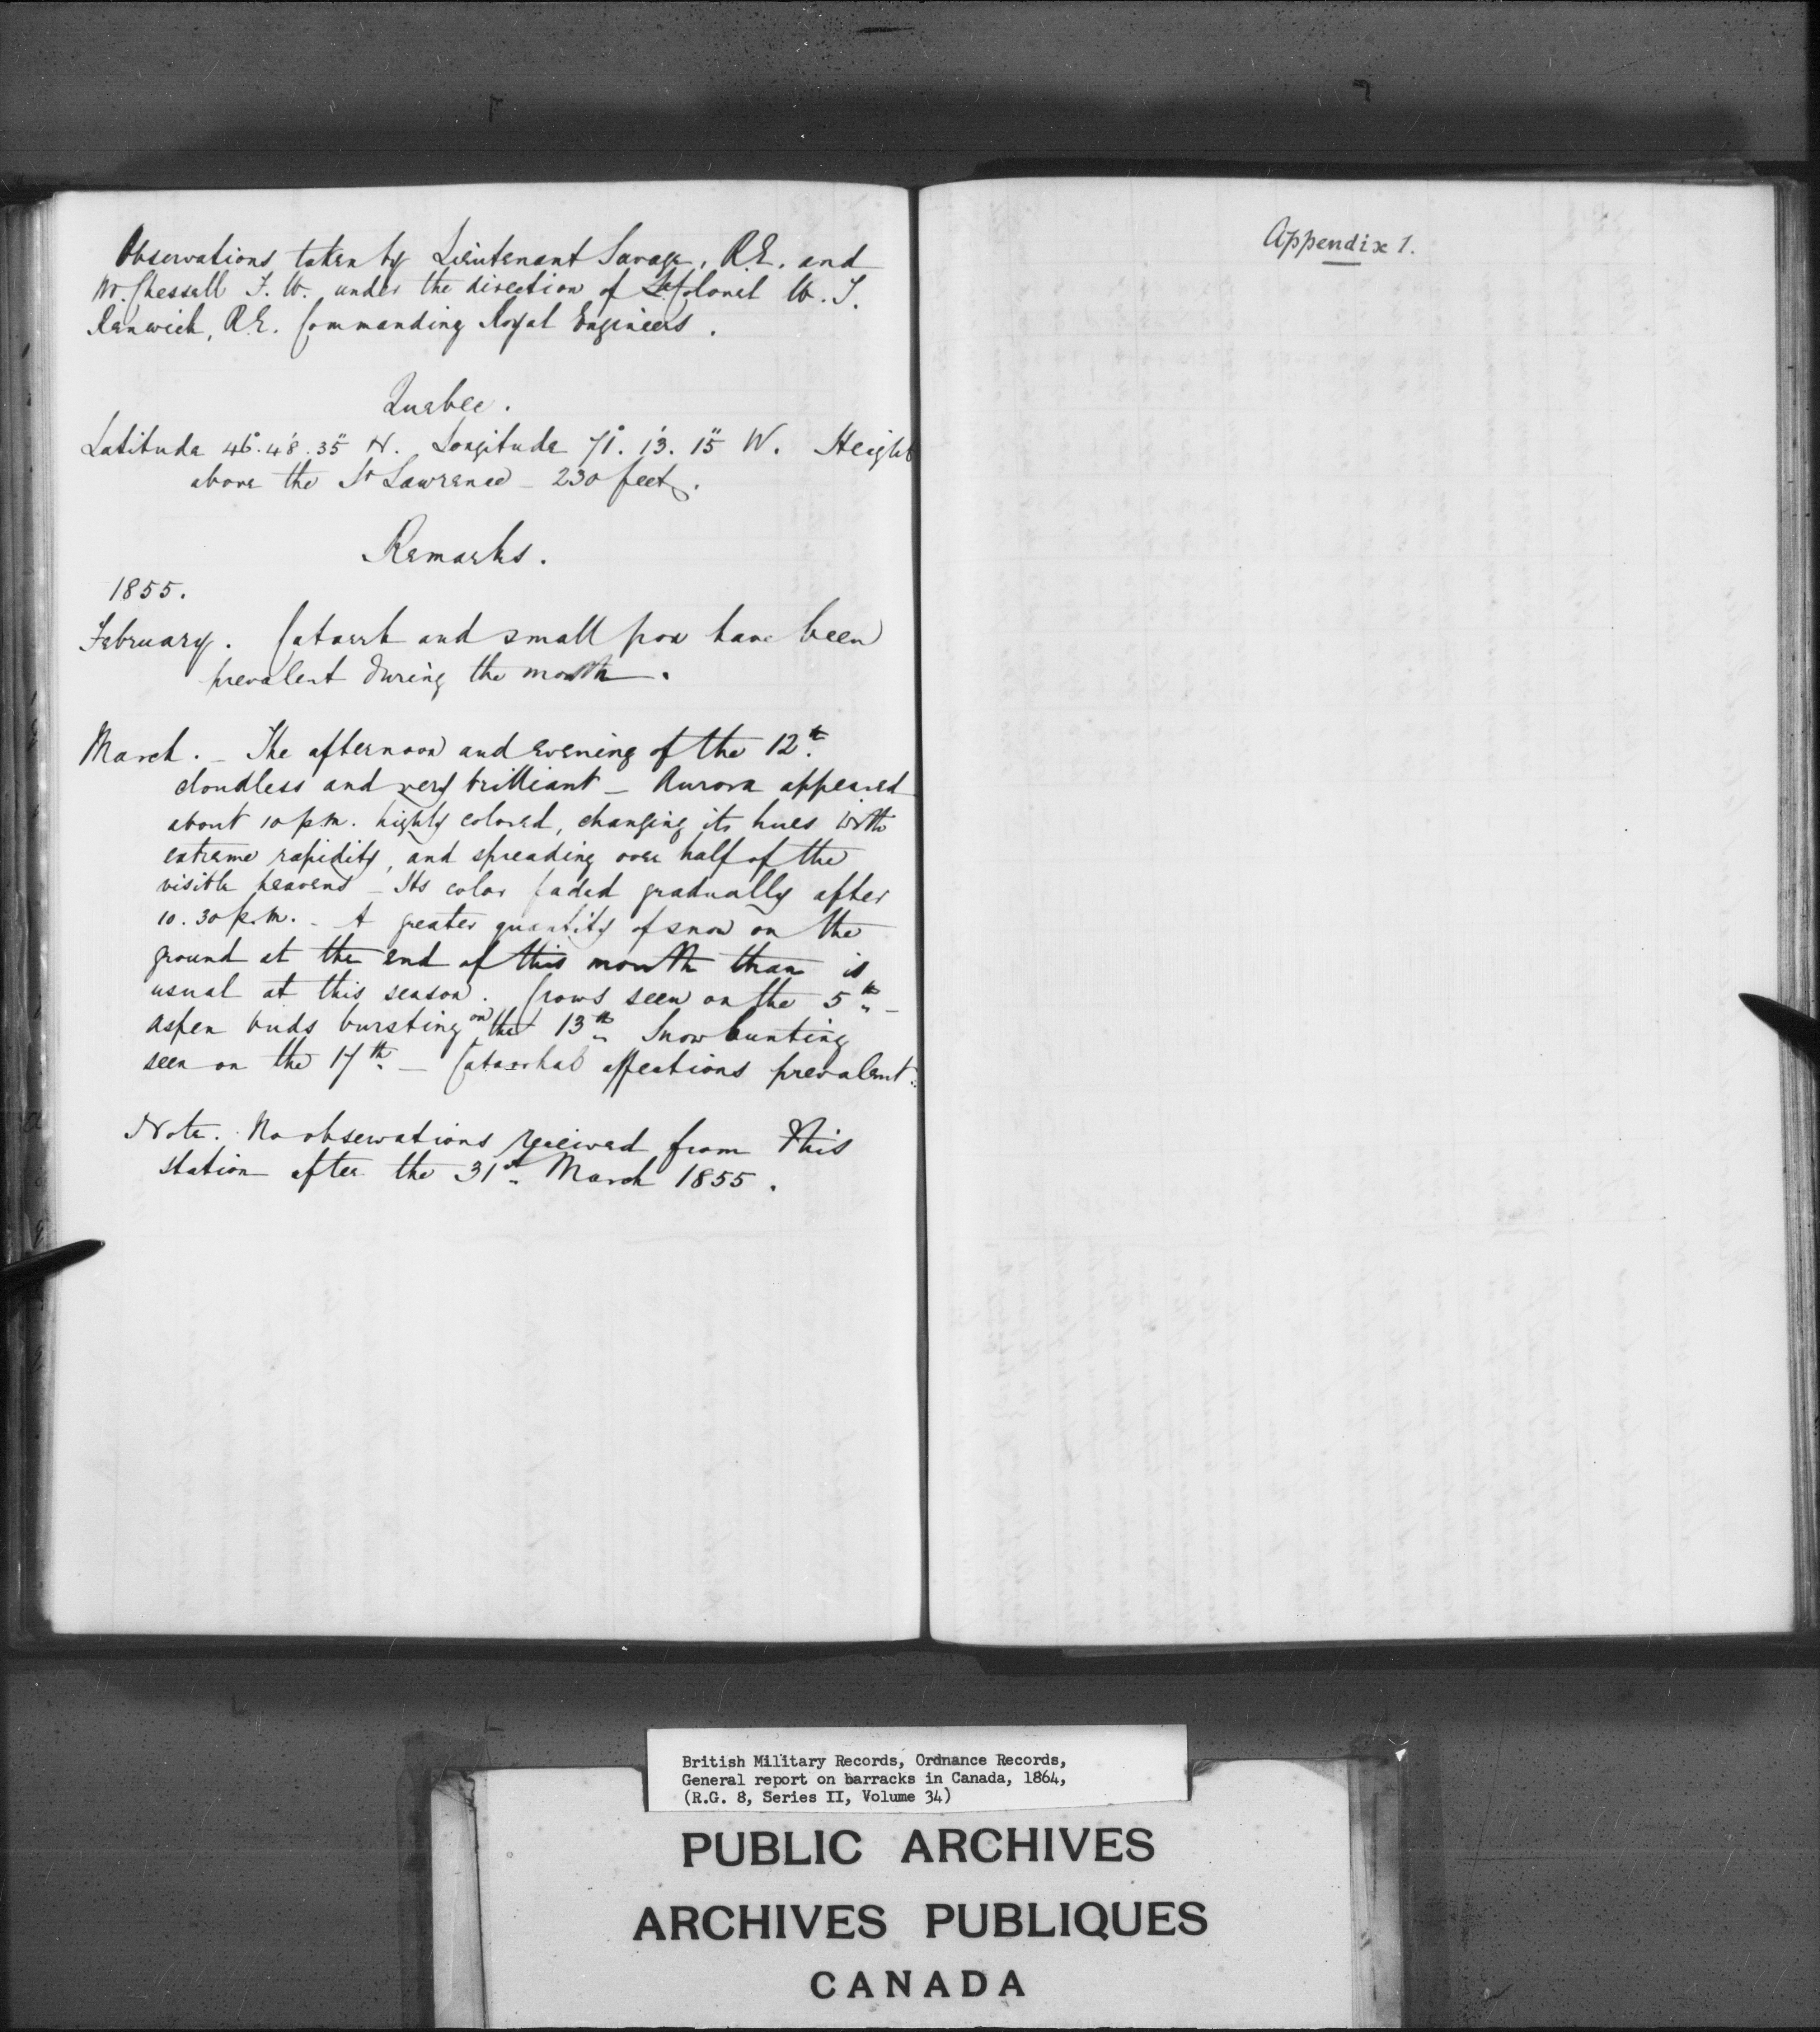 Observations taken by Lieutenant Savage, R.E. and
Mr. Chessell F. W. under the direction of Lt Colonel W. T.
Renwick, R.E. Commanding Royal Engineers.
Quebec.
Latitude 46°.48'.35" N. Longitude 71°. 13'. 15" W. Height
above the St Lawrence - 230 feet.
Remarks.
1855.
February. Catarrh and small pox have been
prevalent during the month.
March. - The afternoon and evening of the 12th.
cloudless and very brilliant - Aurora appeared
about 10 p.m. highly colored, changing its hues with
extreme rapidity, and spreading over half of the
visible heavens - Its color faded gradually after
10.30 p.m. - A greater quantity of snow on the
ground at the end of this month than is
usual at this season. Crows seen on the 5th -
Aspen buds bursting on the 13th Snow bunting
seen on the 17th. - Catarrhal affections prevalent.
Note. No observations received from this
station after the 31st March 1855.
Appendix 1.
British Military Records, Ordnance Records,
General report on barracks in Canada, 1864,
(R.G. 8, Series II, Volume 34)
PUBLIC ARCHIVES
ARCHIVES PUBLIQUES
CANADA